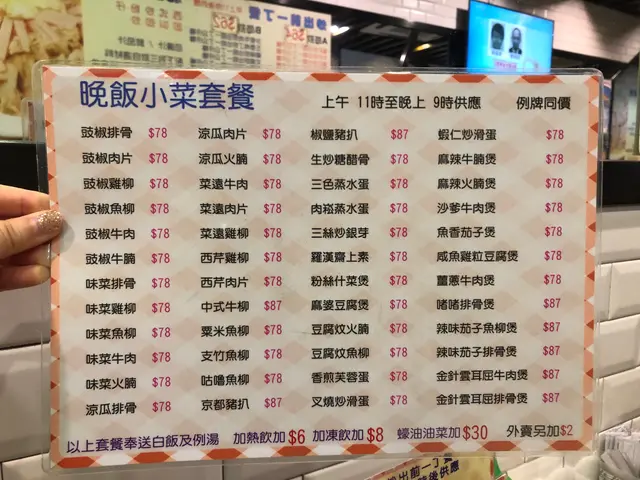 晚飯小菜套餐 上午 11時至晚上 9時供應 例牌同價
豉椒排骨 $78 涼瓜肉片 $78 椒鹽豬扒 $87 蝦仁炒滑蛋 $78
豉椒肉片 $78 涼瓜火腩 $78 生炒糖醋骨 $78 麻辣牛腩煲 $78
豉椒雞柳 $78 菜遠牛肉 $78 三色蒸水蛋 $78 麻辣火腩煲 $78
豉椒魚柳 $78 菜遠肉片 $78 肉崧蒸水蛋 $78 沙爹牛肉煲 $78
豉椒牛肉 $78 菜遠雞柳 $78 三絲炒銀芽 $78 魚香茄子煲 $78
豉椒牛腩 $78 西芹雞柳 $78 羅漢齋上素 $78 咸魚雞粒豆腐煲 $78
味菜排骨 $78 西芹肉片 $78 粉絲什菜煲 $78 薑蔥牛肉煲 $78
味菜雞柳 $78 中式牛柳 $87 麻婆豆腐煲 $78 啫啫排骨煲 $87
味菜魚柳 $78 粟米魚柳 $78 豆腐炆火腩 $78 辣味茄子魚柳煲 $87
味菜牛肉 $78 支竹魚柳 $78 豆腐炆魚柳 $78 辣味茄子排骨煲 $87
味菜火腩 $78 咕嚕魚柳 $78 香煎芙蓉蛋 $78 金針雲耳屈牛肉煲 $87
涼瓜排骨 $78 京都豬扒 $87 叉燒炒滑蛋 $78 金針雲耳屈排骨煲 $87
以上套餐奉送白飯及例湯 加熱飲加 $6 加凍飲加 $8 蠔油油菜加 $30 外賣另加 $2